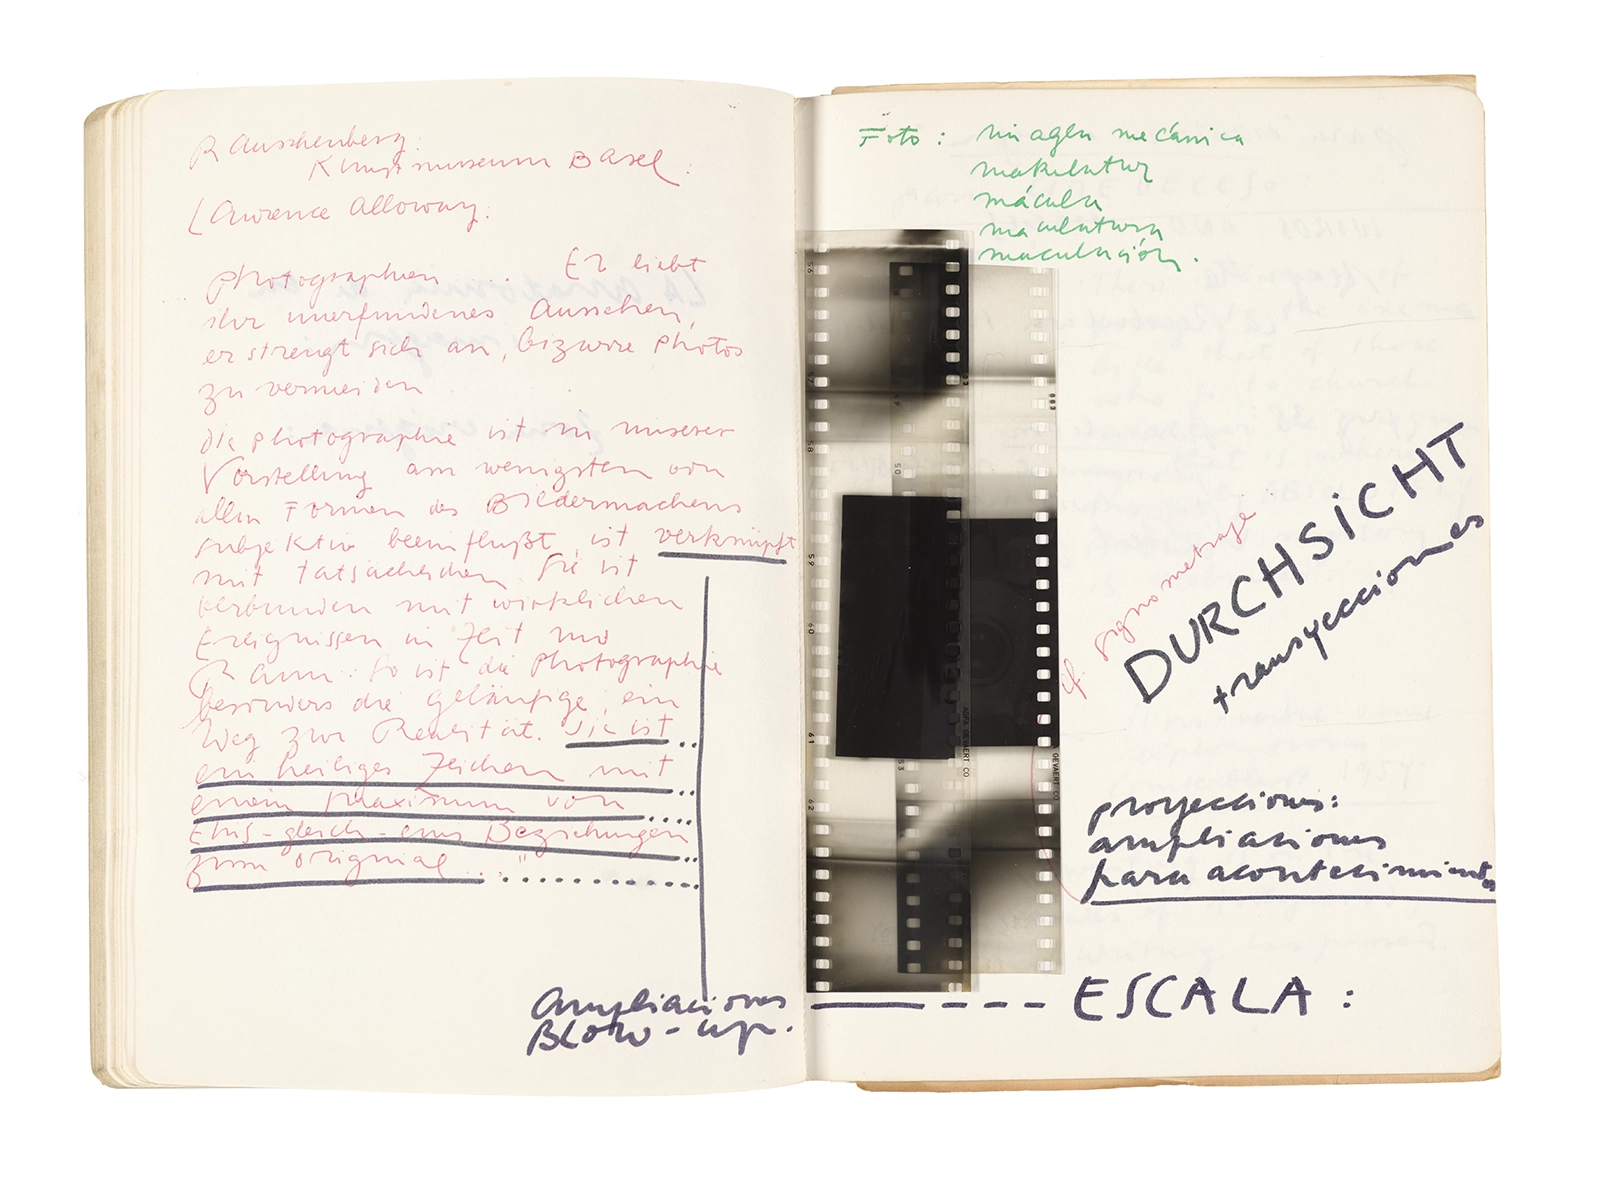 Rauschenberg:
Kunstmuseum Basel:
Lawrence Alloway:
Photographien . Er liebt
ihr unerfundenes Aussehen,
er strengt sich an, bizarre Photos
zu vermeiden
die Photographie ist in unserer
Vorstellung am wenigsten von
allen Formen des Bildermachens
subjektiv beeinflußt, ist verknüpft
mit tatsächlichem. Sie ist
verbunden mit wirklichen
Ereignissen in Zeit und
Raum: so ist die Photographie
besonders die geläufige, ein
Weg zur Realität. Sie ist ..
ein heiliges Zeichen mit ...
einem Maximum von ....
Eins-gleich-eins Beziehungen ..
zum original ..."
Ampliaciones
BLOW-up.
Foto: imagen mecánica
makulatur
mácula
maculatura
maculación.
56
57
58
59
60
61
62
50
53
AGFA GEVAERT CO
GEVAERT CO
cf. signometraje
DURCHSICHT
transyecciones
proyecciones:
ampliaciones
para acontecimientos
ESCALA: